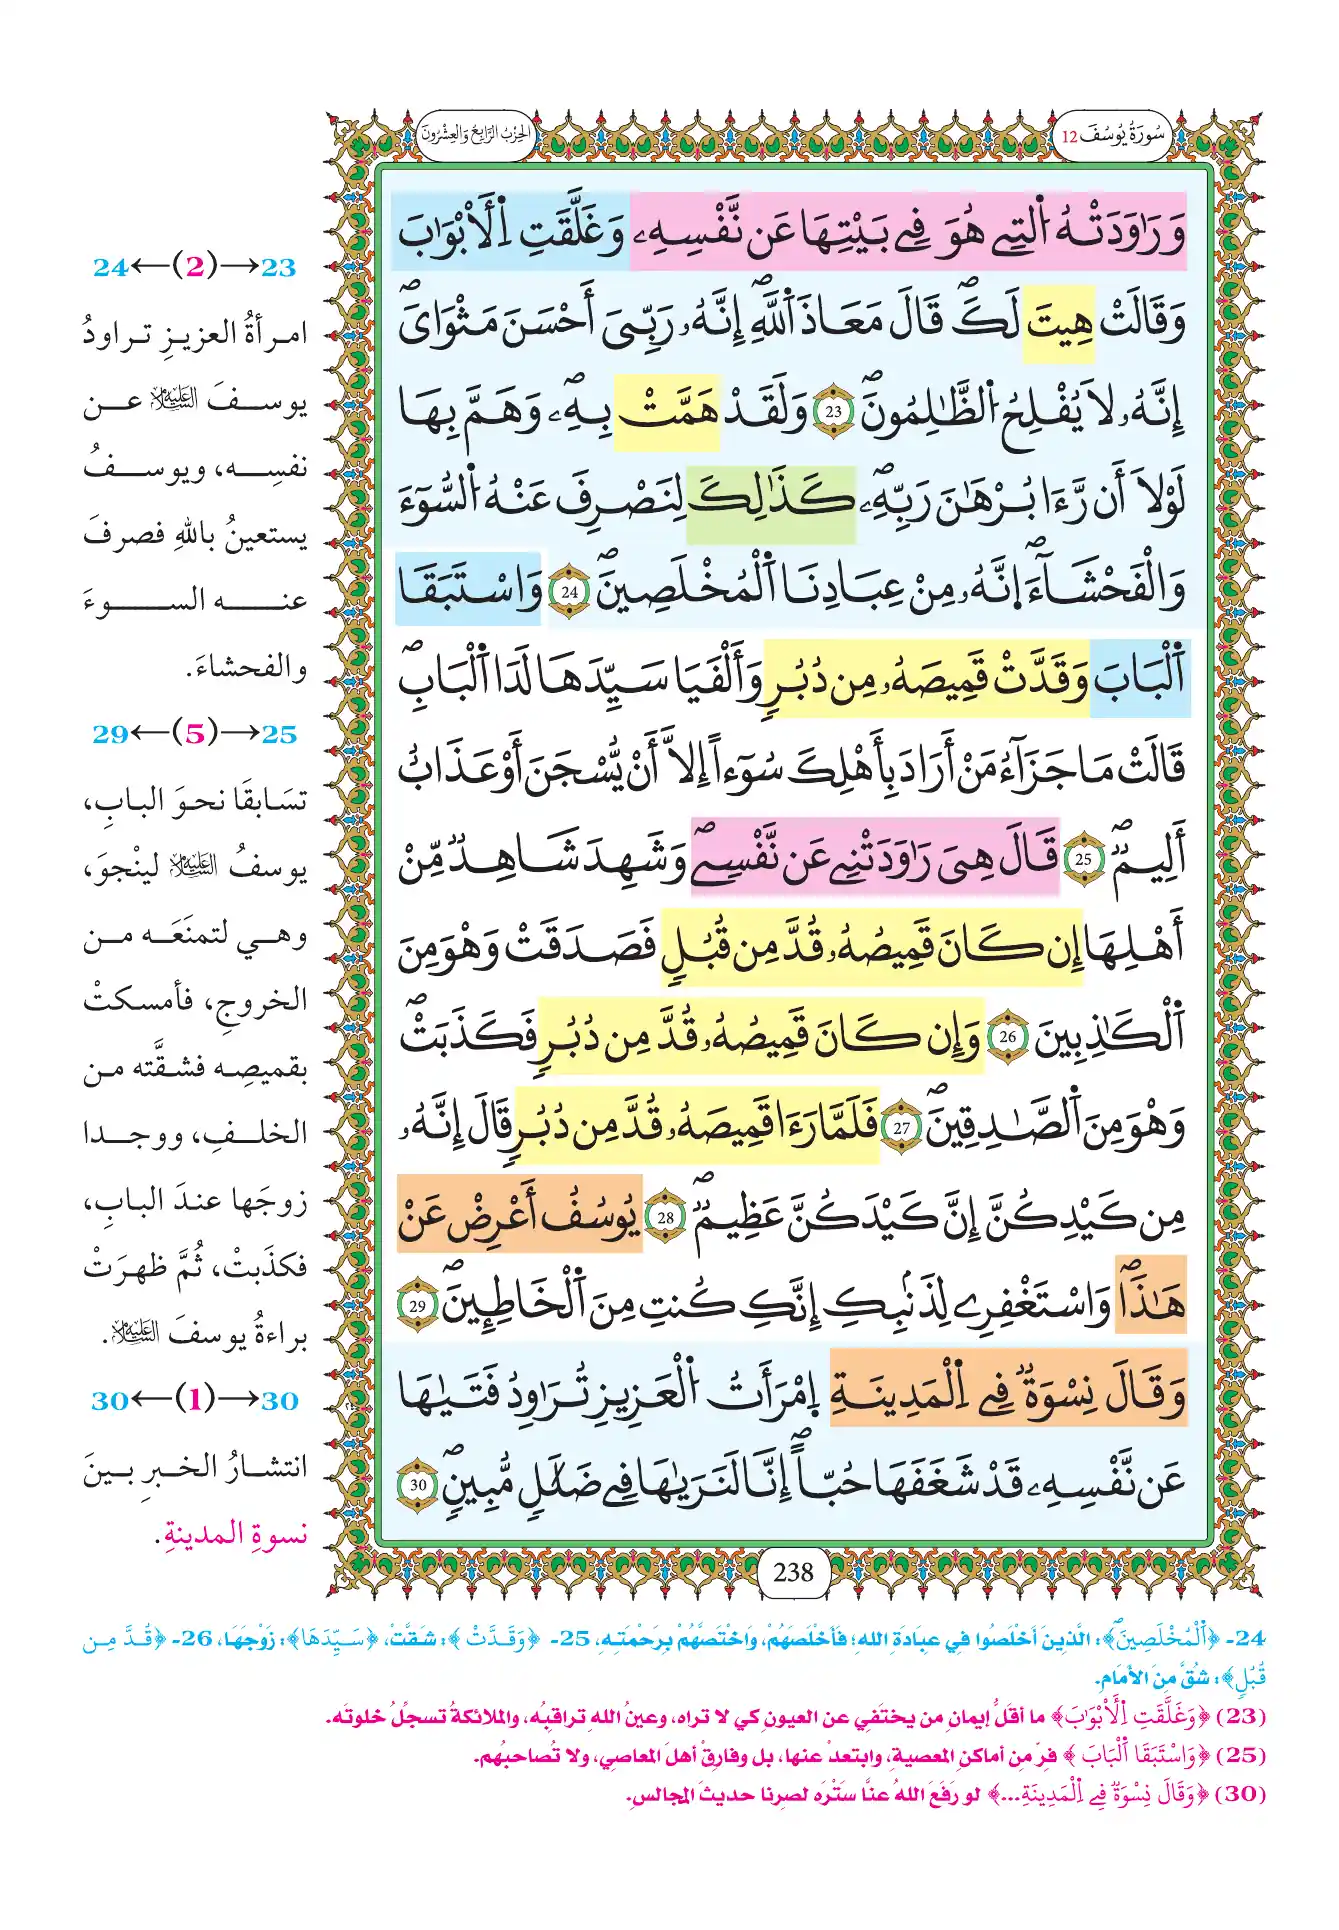 سُورَةُ يُوسُفَ 12
الحِزْبُ الرَّابِعُ وَالعِشْرُونَ
وَرَٰوَدَتْهُ اُ۬لتِے هُوَ فِے بَيْتِهَا عَن نَّفْسِهِۦ وَغَلَّقَتِ اِ۬لَابْوَٰبَ
وَقَالَتْ هِيتَ لَكَۖ قَالَ مَعَاذَ اَ۬للَّهِۖ إِنَّهُۥ رَبِّىَ أَحْسَنَ مَثْوَاىَۖ
إِنَّهُۥ لَا يُفْلِحُ اُ۬لظَّٰلِمُونَۖ 23 وَلَقَدْ هَمَّتْ بِهِۦۖ وَهَمَّ بِهَا
لَوْلَا أَن رَّءَا بُرْهَٰنَ رَبِّهِۦۖ كَذَٰلِكَ لِنَصْرِفَ عَنْهُ اُ۬لسُّوٓءَ
وَالْفَحْشَآءَۖ اِنَّهُۥ مِنْ عِبَادِنَا اَ۬لْمُخْلَصِينَۖ 24 وَاسْتَبَقَا
اَ۬لْبَابَ وَقَدَّتْ قَمِيصَهُۥ مِن دُبُرٍ وَأَلْفَيَا سَيِّدَهَا لَدَا اَ۬لْبَابِۖ
قَالَتْ مَا جَزَآءُ مَنْ أَرَادَ بِأَهْلِكَ سُوٓءاً اِلَّا أَنْ يُّسْجَنَ أَوْ عَذَابٌ
أَلِيمٌۖ 25 قَالَ هِىَ رَٰوَدَتْنِے عَن نَّفْسِےۖ وَشَهِدَ شَاهِدٌ مِّنْ
أَهْلِهَا إِن كَانَ قَمِيصُهُۥ قُدَّ مِن قُبُلٍ فَصَدَقَتْ وَهُوَ مِنَ
اَ۬لْكَٰذِبِينَ 26 وَإِن كَانَ قَمِيصُهُۥ قُدَّ مِن دُبُرٍ فَكَذَبَتْۖ
وَهُوَ مِنَ اَ۬لصَّٰدِقِينَۖ 27 فَلَمَّا رَءَا قَمِيصَهُۥ قُدَّ مِن دُبُرٍ قَالَ إِنَّهُۥ
مِن كَيْدِكُنَّ إِنَّ كَيْدَكُنَّ عَظِيمٌۖ 28 يُوسُفُ أَعْرِضْ عَنْ
هَٰذَاۖ وَاسْتَغْفِرِے لِذَنۢبِكِ إِنَّكِ كُنتِ مِنَ اَ۬لْخَاطِـِٕينَۖ 29
وَقَالَ نِسْوَةٌ فِے اِ۬لْمَدِينَةِ اِ۪مْرَأَتُ اُ۬لْعَزِيزِ تُرَٰوِدُ فَتَيٰهَا
عَن نَّفْسِهِۦ قَدْ شَغَفَهَا حُبّاًۖ اِنَّا لَنَرَيٰهَا فِے ضَلَٰلٍ مُّبِينٍۖ 30
238
23→(2)←24
امرأةُ العزيزِ تراودُ
يوسفَ عليه السلام عن
نفسِه، ويوسفُ
يستعينُ باللهِ فصرفَ
عنه السوءَ
والفحشاءَ.
25→(5)←29
تسَابقَا نحوَ البابِ،
يوسفُ عليه السلام لينْجوَ،
وهي لتمنَعَه من
الخروجِ، فأمسكتْ
بقميصِه فشقَّته من
الخلفِ، ووجدا
زوجَها عندَ البابِ،
فكذَبتْ، ثُمَّ ظهرَتْ
براءةُ يوسفَ عليه السلام.
30→(1)←30
انتشارُ الخبرِ بينَ
نسوةِ المدينةِ.
24- ﴿اَ۬لْمُخْلَصِينَۖ﴾: الَّذِينَ أَخْلَصُوا فِي عِبَادَةِ الله؛ فَأَخْلَصَهُمْ، وَاخْتَصَّهُمْ بِرَحْمَتِهِ، 25- ﴿وَقَدَّتْ﴾: شَقَّتْ، ﴿سَيِّدَهَا﴾: زَوْجَهَا، 26- ﴿قُدَّ مِن
قُبُلٍ﴾: شُقَّ مِنَ الأَمَامِ.
(23) ﴿وَغَلَّقَتِ اِ۬لَابْوَٰبَ﴾ ما أقلَّ إيمانِ من يختَفي عن العيونِ كي لا تراه، وعينُ اللهِ تراقبُه، والملائكةُ تسجلُ خلوتَه.
(25) ﴿وَاسْتَبَقَا اَ۬لْبَابَ﴾ فِرّ من أماكنِ المعصيةِ، وابتعدْ عنها، بل وفارقْ أهلَ المعاصي، ولا تُصاحبْهُم.
(30) ﴿وَقَالَ نِسْوَةٌ فِے اِ۬لْمَدِينَةِ...﴾ لو رَفَعَ اللهُ عنَّا سَتْرَه لصِرنا حديثَ المجالسِ.